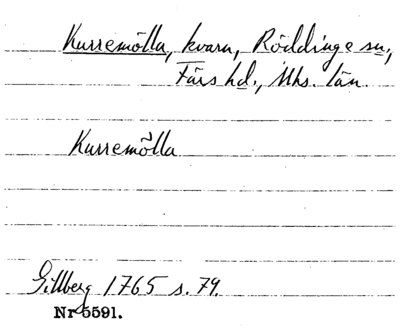 Kurremölla, kvarn, Röddinge sn,
Färs hd., Mhs. län.
Kurremölla
Gillberg 1765 s. 79.
Nr 5591.